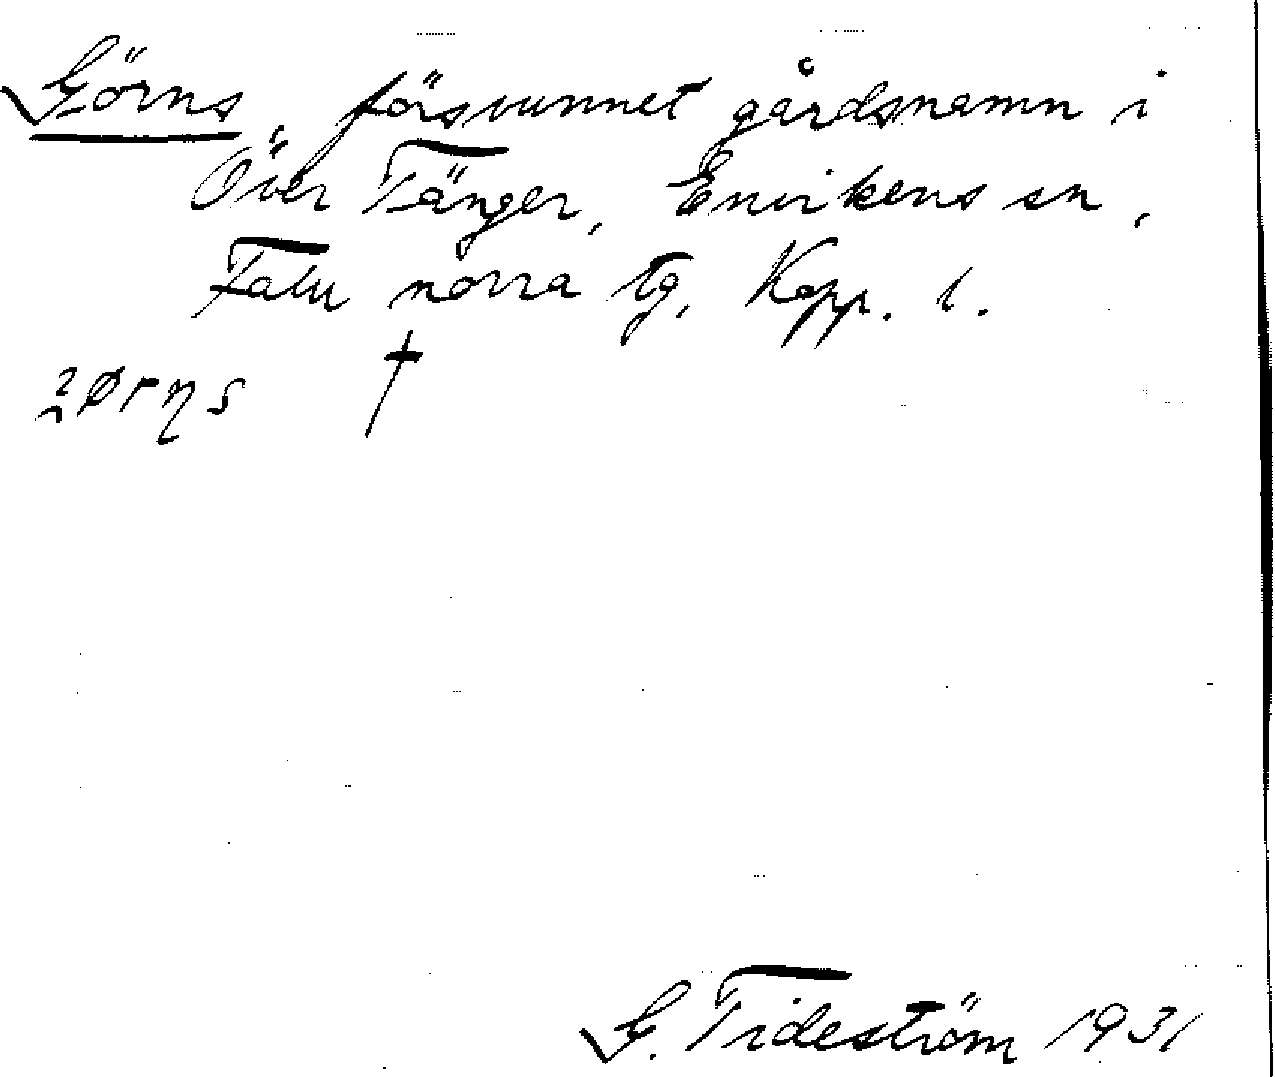 Görns, försvunnet gårdsnamn i
Över Tänger, Envikens sn,
Falu norra tg, Kopp. l.
†
G. Tideström 1931